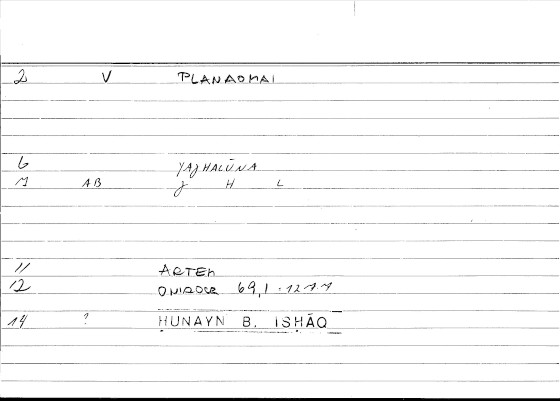 2 V PLANAOMAI
6 YAJHALŪNA
7 AB J H L
11 ARTEM
12 ONIROCR 69,1 - 12
14 ? ḤUNAYN B. ISḤĀQ